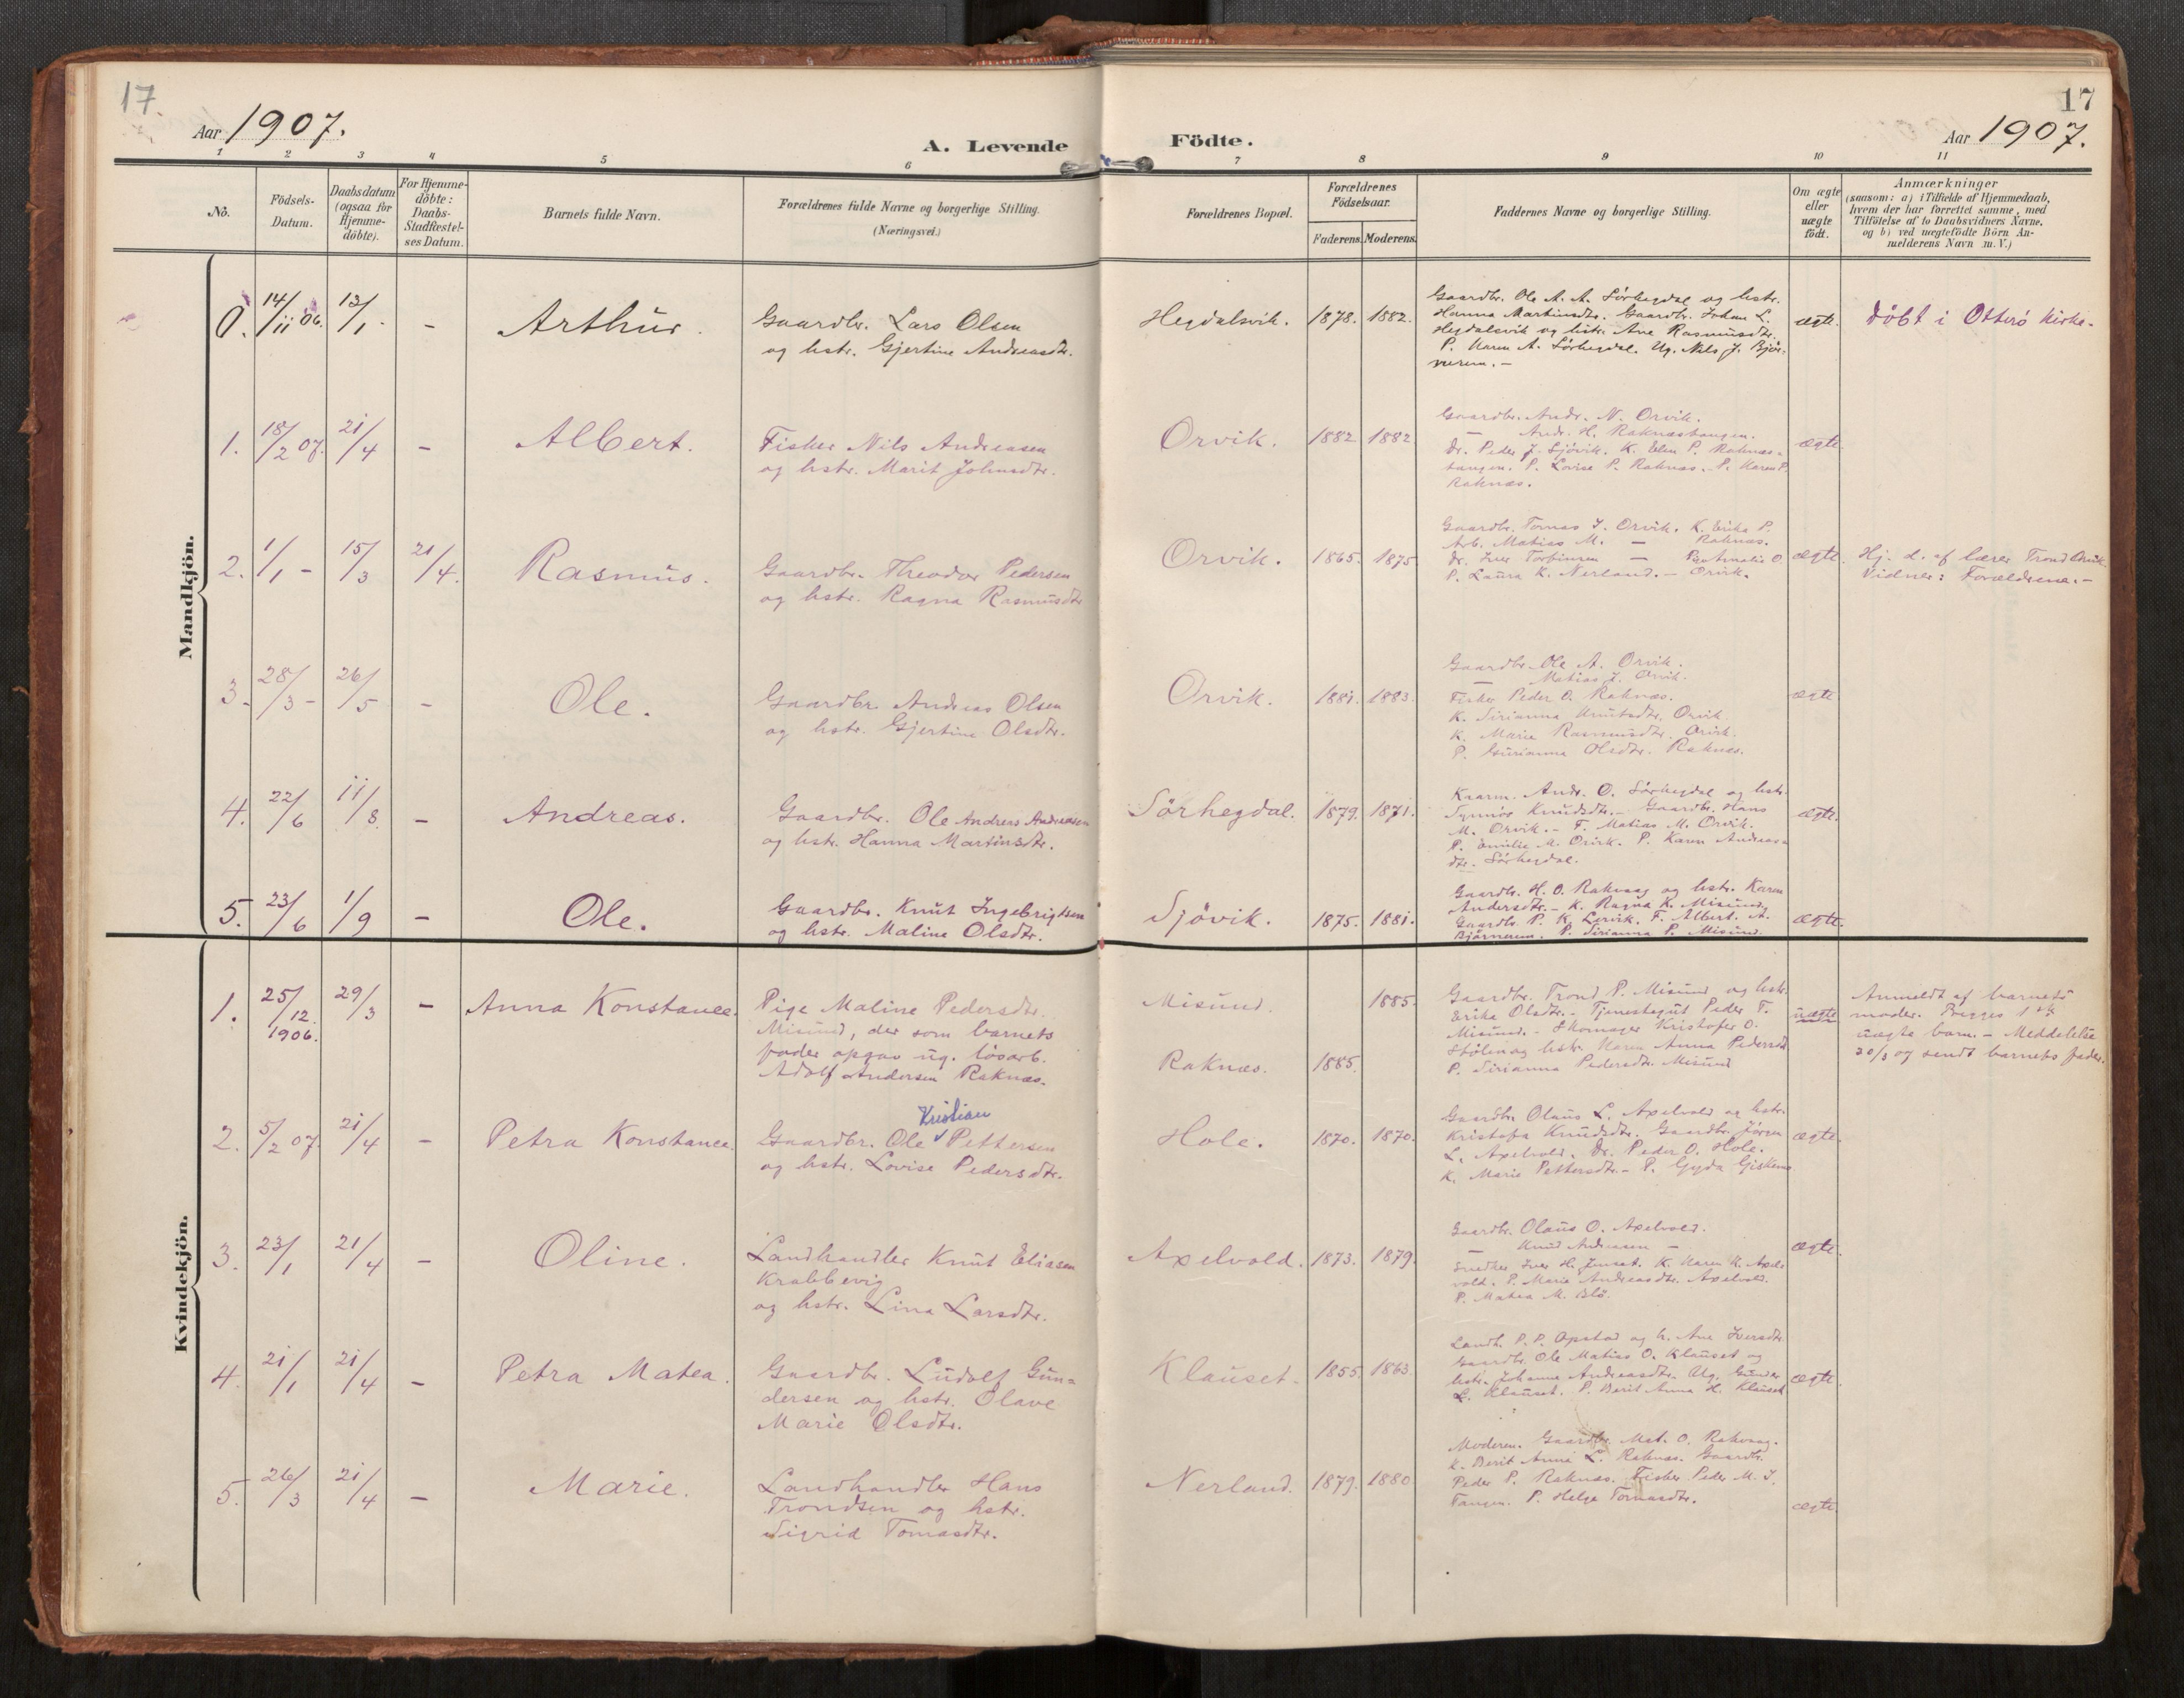 17.
17
Aar 1907.
A. Levende
Födte.
Aar 1907.
1 2 3 4 5 6 7 8 9 10 11
No.
Födsels-
Datum.
Daabsdatum
(ogsaa for
Hjemme-
döbte).
For Hjemme-
döbte:
Daabs-
Stadfæstel-
ses Datum.
Barnets fulde Navn.
Forældrenes fulde Navne og borgerlige Stilling.
(Næringsvei.)
Forældrenes Bopæl.
Forældrenes
Födselsaar.
Faderens. Moderens.
Faddernes Navne og borgerlige Stilling.
Om ægte
eller
uægte
födt.
Anmærkninger
(saasom: a) i Tilfælde af Hjemmedaab,
hvem der har forrettet samme, med
Tilföielse af to Daabsvidners Navne.
og b) ved uægtefödte Börn An-
melderens Navn m.V.)
Mandkjön.
0. 14/11 06. 13/1. - Arthur.
Gaardbr. Lars Olsen
og hstr. Gjertine Andreasdtr.
Hegdalsvik. 1878. 1882.
Gaardbr. Ole A. A. Sörhegdal og hstr.
Hanna Martinsdtr. Gaardbr. Johan L.
Hegdalsvik og hstr. Ane Rasmusdtr.
P. Karen A. Sörhegdal. Ug. Nils J. Björ-
nerem. -
ægte. Döbt i Otterö kirke.
1. 18/2 07. 21/4 - Albert.
Fisker Nils Andreasen
og hstr. Marit Johnsdtr.
Orvik. 1882 1882
Gaardbr. Andr. N. Orvik.
— Andr. H. Raknæstangen.
Dr. Peder J. Sjövik. K. Elen P. Raknæs-
tangen. P. Lovise P. Raknæs. P. Karen P.
Raknæs.
ægte
2. 1/1 - 15/3 21/4. Rasmus.
Gaardbr. Theodor Pedersen
og hstr. Ragna Rasmusdtr
Orvik. 1865. 1875
Gaardbr. Tomas J. Orvik. K. Erika P.
Arb. Matias M. — Raknæs.
Dr. Iver Torfinsen — P. Amalie O.
P. Laura K. Nerland. - Orvik.
ægte. Hj. d. af lærer Trond Orvik
Vidner: Forældrene. -
3. 28/3 - 26/5 - Ole.
Gaardbr. Andreas Olsen
og hstr. Gjertine Olsdtr.
Orvik. 1881. 1883.
Gaardbr. Ole A. Orvik.
— Matias J. Orvik.
Fisker Peder O. Raknæs.
K. Sirianna Knutsdtr. Orvik.
K. Marie Rasmusdtr. Orvik.
P. Gurianna Olsdtr. Raknæs.
ægte
4. 22/6 11/8. - Andreas.
Gaardbr. Ole Andreas Andreasen
og hstr. Hanna Martinsdtr.
Sörhegdal. 1879. 1871.
Kaarm. Andr. O. Sörhegdal og hstr.
Synnöv Knudsdtr. - Gaardbr. Hans
M. Orvik. - F. Matias M. Orvik.
P. Emilie M. Orvik. P. Karen Andreas-
dtr. Sörhegdal.
ægte.
5. 23/6 1/9 - Ole.
Gaardbr. Knut Ingebrigtsen
og hstr. Maline Olsdtr.
Sjövik. 1875. 1881.
Gaardbr. H. O. Rakvaag og hstr. Karen
Andersdtr. - K. Ragna K. Misund.
Gaardbr. P. K. Lervik. F. Albert A.
Björnerem. P. Sirianna P. Misund.
ægte.
Kvindekjön.
1. 25/12. 1906. 29/3 - Anna Konstance.
Pige Maline Pedersdtr.
Misund, der som barnets
fader opgav ug. lösarb.
Adolf Andersen Raknæs.
Misund. 1885.
Raknæs. 1885.
Gaardbr. Trond P. Misund og hstr.
Erika Olsdtr. - Tjenestegut Peder T.
Misund. - Skomager Kristofer O.
Stölen og hstr. Karen Anna Pedersdtr
P. Sirianna Pedersdtr. Misund
uægte
Anmeldt af barnets
moder. Begges 1ste
uægte barn. - Meddelelse
30/3 07 sendt barnets fader.
2. 5/2 07. 21/4 - Petra Konstance.
Kristian
Gaardbr. Ole Pettersen
og hstr. Lovise Pedersdtr.
Hole. 1870. 1870.
Gaardbr. Olaus L. Axelvold og hstr.
Kristofa Knudsdtr. Gaardbr. Jörgen
L. Axelvold. Dr. Peder O. Hole.
K. Marie Pettersdtr. - P. Gyda Giskemo
ægte.
3. 23/1 21/4 - Oline.
Landhandler Knut Eliasen
Krabbevig
og hstr. Lina Larsdtr.
Axelvold. 1873. 1879.
Gaardbr. Olaus O. Axelvold.
— Knud Andreasen —
Snedker Iver H. Jenset. K. Karen K. Axel-
vold. P. Marie Andreasdtr. Axelvold.
P. Matea M. Blö.
ægte.
4. 21/1 21/4 - Petra Matea.
Gaardbr. Ludolf Gun-
dersen og hstr. Olave
Marie Olsdtr.
Klauset. 1855. 1863
Landh. P. P. Opstad og h. Ane Iversdtr
Gaardbr. Ole Matias O. Klauset og
hstr. Johanna Andreasdtr. Ug. Gunder
L. Klauset. P. Berit Anna H. Klauset
ægte.
5. 26/3 21/4 - Marie.
Landhandler Hans
Trondsen og hstr.
Sigrid Tomasdtr.
Nerland. 1879. 1880.
Moderen. Gaardbr. Mat. O. Rakvaag.
K. Berit Anna L. Raknæs. Gaardbr.
Peder P. Raknæs. Fisker Peder M. J.
Tangen. P. Helga Tomasdtr.
ægte.